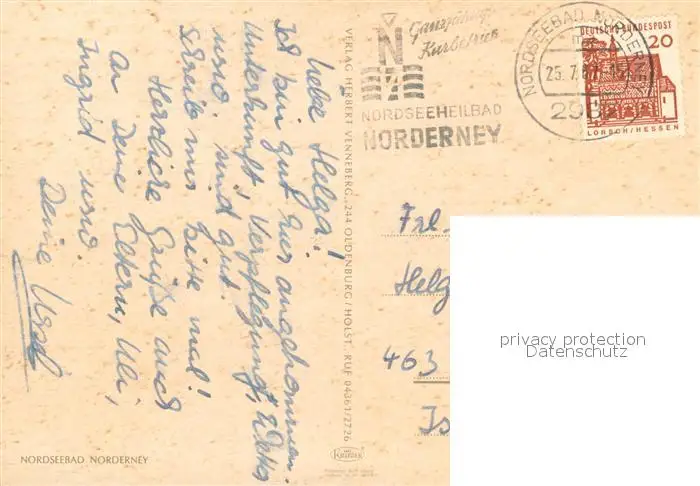 Liebe Helga!
Ich bin gut hier angekommen.
Unterkunft, Verpflegung, Wetter
usw. sind gut.
Schreib mir bitte mal!
Herzliche Grüße auch
an Deine Eltern, Uli,
Ingrid usw.
Deine
NORDSEEBAD NORDERNEY
VERLAG HERBERT VENNEBERG, 244 OLDENBURG/HOLST. RUF 04361/2726
KRÜGER
Ganzjährig
Kurbetrieb
N
NORDSEEHEILBAD
NORDERNEY
NORDSEEBAD NORDERNEY
25.7.
2982
DEUTSCHE BUNDESPOST
20
LORSCH/HESSEN
Frl.
Helg
463
privacy protection
Datenschutz